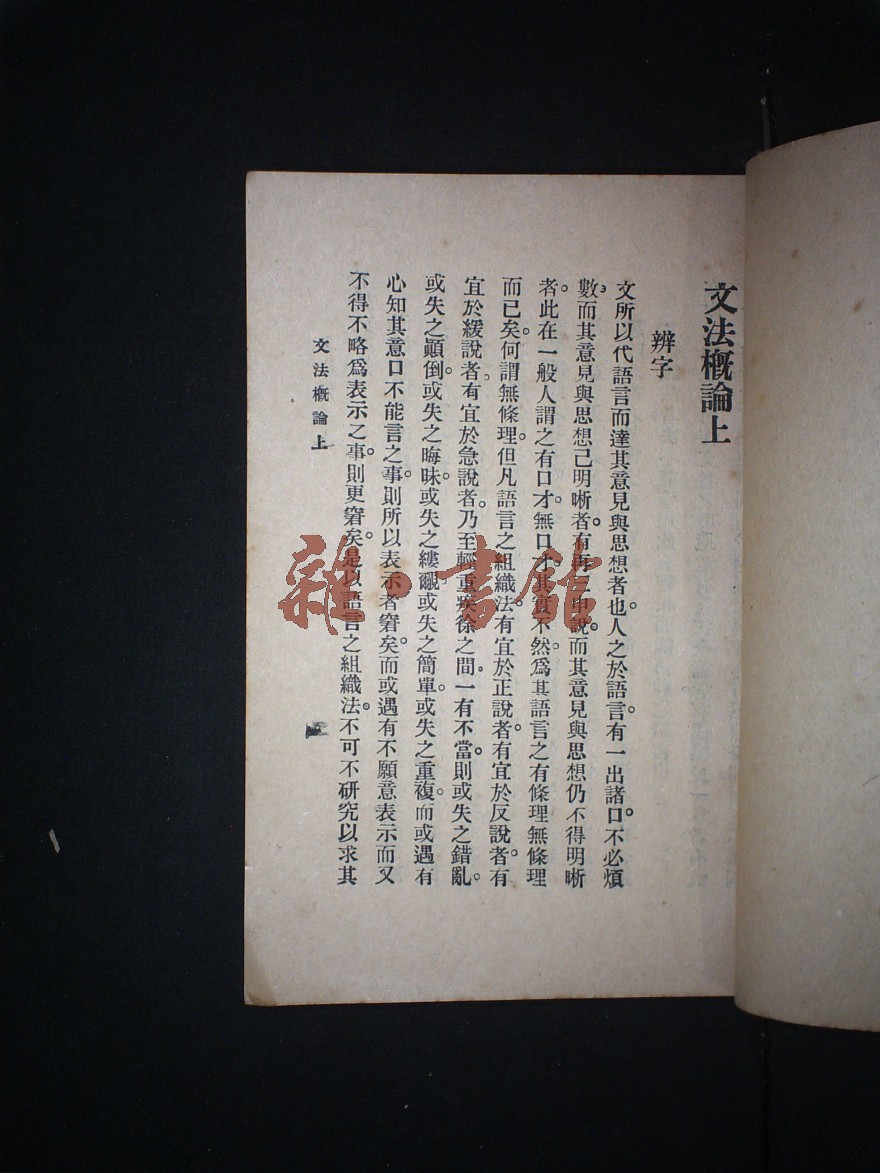 文法概論上
辨字
文所以代語言而達其意見與思想者也。人之於語言。有一出諸口。不必煩
數而其意見與思想已明晰者。有再三申說。而其意見與思想仍不得明晰
者。此在一般人謂之有口才。無口才。其實不然。爲其語言之有條理無條理
而已矣。何謂無條理。但凡語言之組織法。有宜於正說者。有宜於反說者。有
宜於緩說者。有宜於急說者。乃至輕重疾徐之間。一有不當。則或失之錯亂。
或失之顚倒。或失之晦昧。或失之縷覼。或失之簡單。或失之重複。而或遇有
心知其意口不能言之事。則所以表示者窘矣。而或遇有不願意表示而又
不得不略爲表示之事。則更窘矣。是以語言之組織法。不可不研究以求其
文法概論上
雜·書館